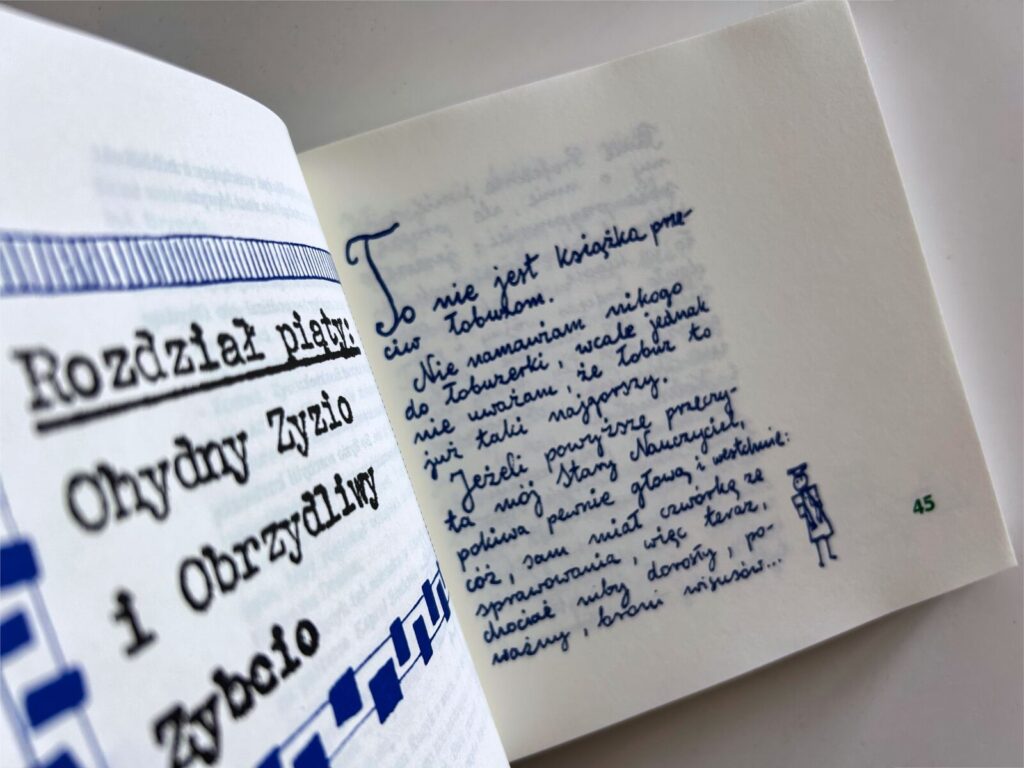 Rozdział piąty:
Ohydny Zyzio
i Obrzydliwy
Zybcio
To nie jest książka prze-
ciw łobuzom.
Nie namawiam nikogo
do łobuzerki, wcale jednak
nie uważam, że łobuz to
już taki najgorszy.
Jeżeli powyższe przeczy-
ta mój Stary Nauczyciel,
pokiwa pewnie głową i westchnie:
cóż, sam miał czwórkę ze
sprawowania, więc teraz,
chociaż niby dorosły, po-
ważny, broni wisusów...
45